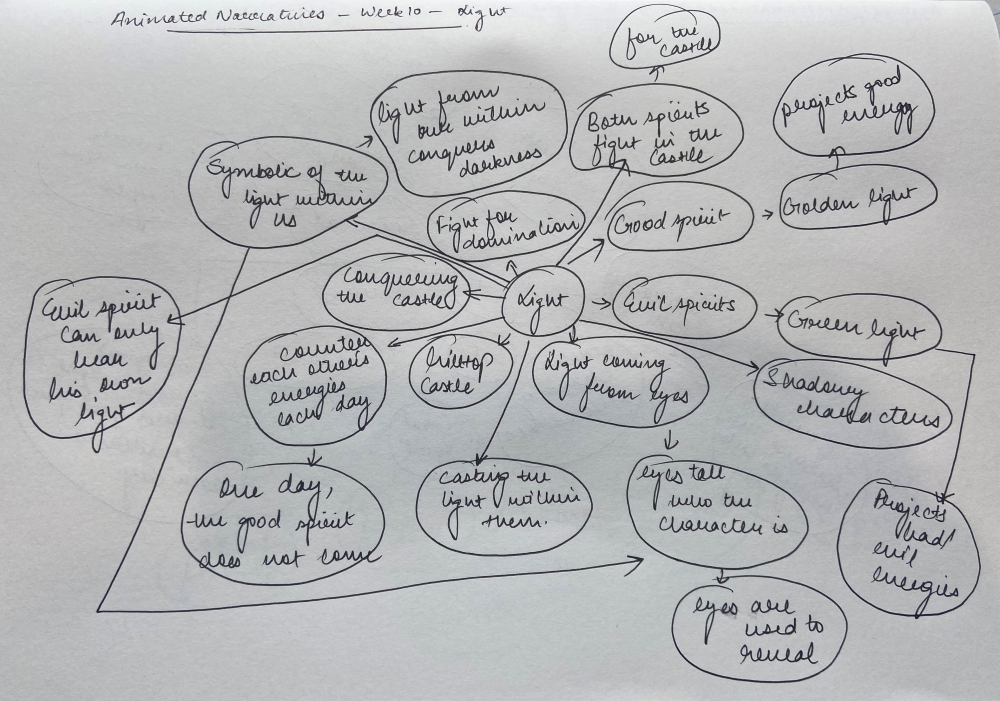 Animated Narratives - Week 10 - Light
for the
castle
light from
our within
conquers
darkness
Both spirits
fight in the
castle
Projects good
energy
Symbolic of the
light within
us
Fight for
domination
Good spirit
Golden light
Conquering
the castle
Light
Evil spirits
Green light
Evil spirit
can only
bear
his own
light
counter
each others
energies
each day
hilltop
castle
Light coming
from eyes
Shadowy
characters
One day,
the good spirit
does not come
casting the
light within
them.
eyes tell
who the
character is
Projects
bad/
evil
energies
eyes are
used to
reveal